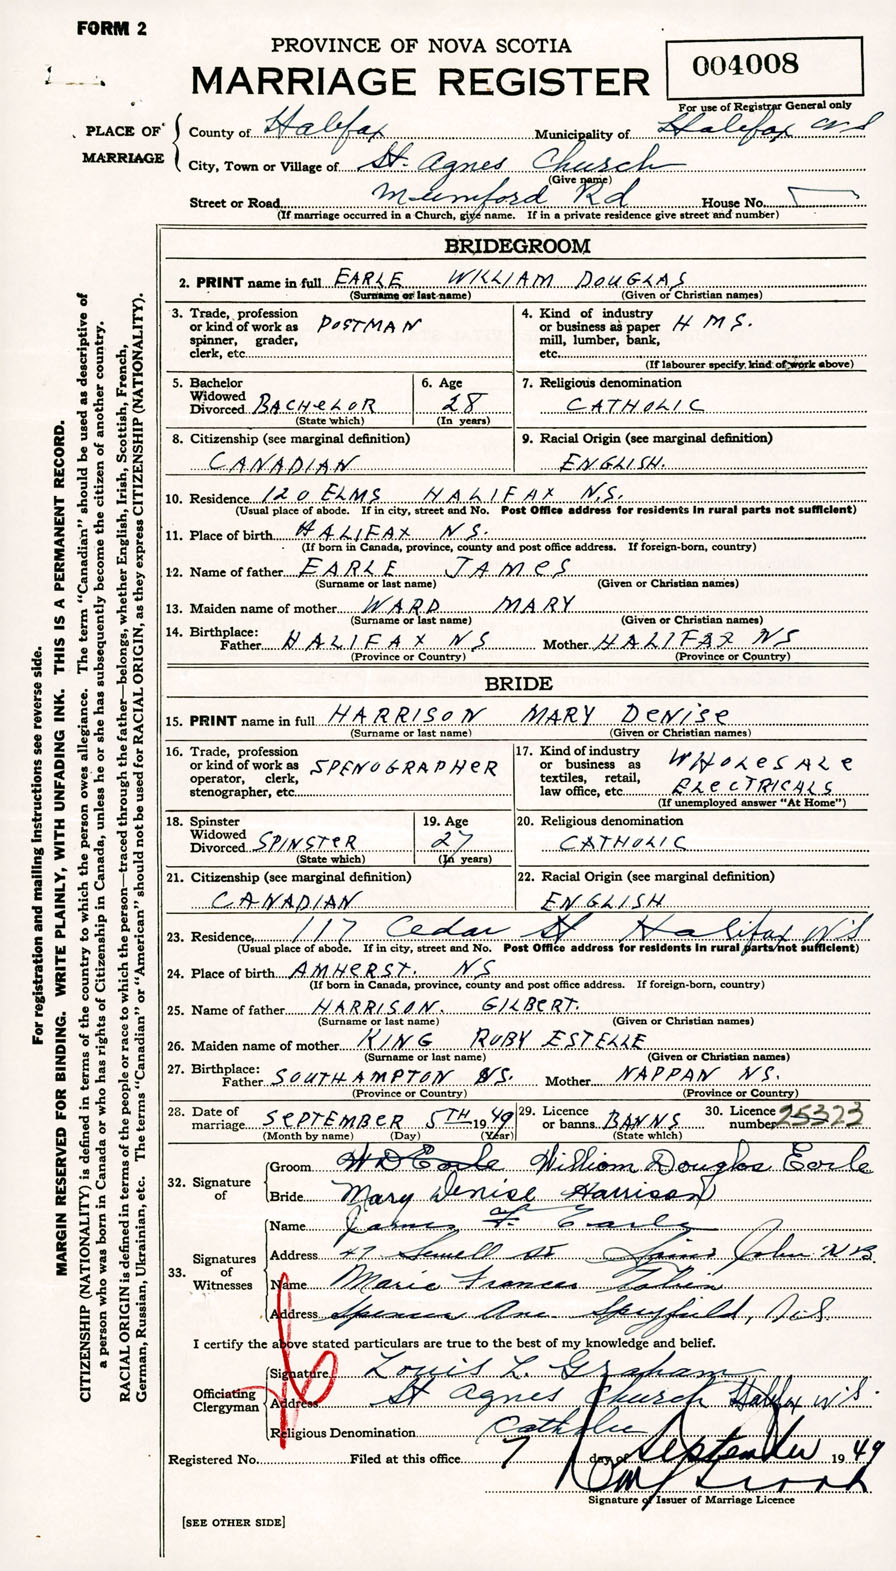 FORM 2
PROVINCE OF NOVA SCOTIA
MARRIAGE REGISTER
004008
For use of Registrar General only
PLACE OF MARRIAGE
County of Halifax Municipality of Halifax NS
City, Town or Village of St. Agnes Church
(Give name)
Street or Road Mumford Rd House No.
(If marriage occurred in a Church, give name. If in a private residence give street and number)
BRIDEGROOM
2. PRINT name in full EARLE WILLIAM DOUGLAS
(Surname or last name) (Given or Christian names)
3. Trade, profession or kind of work as spinner, grader, clerk, etc. POSTMAN
4. Kind of industry or business as paper mill, lumber, bank, etc. H M S.
(If labourer specify kind of work above)
5. Bachelor Widowed Divorced BACHELOR
(State which)
6. Age 28
(In years)
7. Religious denomination
CATHOLIC
8. Citizenship (see marginal definition)
CANADIAN
9. Racial Origin (see marginal definition)
ENGLISH.
10. Residence 120 ELMS HALIFAX N.S.
(Usual place of abode. If in city, street and No. Post Office address for residents in rural parts not sufficient)
11. Place of birth HALIFAX NS.
(If born in Canada, province, county and post office address. If foreign-born, country)
12. Name of father EARLE JAMES
(Surname or last name) (Given or Christian names)
13. Maiden name of mother WARD MARY
(Surname or last name) (Given or Christian names)
14. Birthplace: Father HALIFAX NS Mother HALIFAX NS
(Province or Country) (Province or Country)
BRIDE
15. PRINT name in full HARRISON MARY DENISE
(Surname or last name) (Given or Christian names)
16. Trade, profession or kind of work as operator, clerk, stenographer, etc. SPENOGRAPHER
17. Kind of industry or business as textiles, retail, law office, etc. WHOLESALE ELECTRICALS
(If unemployed answer "At Home")
18. Spinster Widowed Divorced SPINSTER
(State which)
19. Age 27
(In years)
20. Religious denomination
CATHOLIC
21. Citizenship (see marginal definition)
CANADIAN
22. Racial Origin (see marginal definition)
ENGLISH
23. Residence 117 Cedar St Halifax NS
(Usual place of abode. If in city, street and No. Post Office address for residents in rural parts not sufficient)
24. Place of birth AMHERST. NS
(If born in Canada, province, county and post office address. If foreign-born, country)
25. Name of father HARRISON. GILBERT.
(Surname or last name) (Given or Christian names)
26. Maiden name of mother KING RUBY ESTELLE
(Surname or last name) (Given or Christian names)
27. Birthplace: Father SOUTHAMPTON NS. Mother NAPPAN NS.
(Province or Country) (Province or Country)
28. Date of marriage SEPTEMBER 5TH 1949
(Month by name) (Day) (Year)
29. Licence or banns BANNS
(State which)
30. Licence number 25323
32. Signature of
Groom W D Earle William Douglas Earle
Bride Mary Denise Harrison
33. Signatures of Witnesses
Name James F. Earle
Address 47 Sewell St Saint John N.B.
Name Marie Frances Tobin
Address Spencer Ave. Spryfield, N.S.
I certify the above stated particulars are true to the best of my knowledge and belief.
Officiating Clergyman
Signature Louis L. Graham
Address St Agnes Church Halifax N.S.
Religious Denomination Catholic
Registered No. Filed at this office 7 day of September 1949
Signature of Issuer of Marriage Licence
[SEE OTHER SIDE]
For registration and mailing instructions see reverse side.
MARGIN RESERVED FOR BINDING. WRITE PLAINLY, WITH UNFADING INK. THIS IS A PERMANENT RECORD.
CITIZENSHIP (NATIONALITY) is defined in terms of the country to which the person owes allegiance. The term "Canadian" should be used as descriptive of
a person who was born in Canada or who has rights of Citizenship in Canada, unless he or she has subsequently become the citizen of another country.
RACIAL ORIGIN is defined in terms of the people or race to which the person—traced through the father—belongs, whether English, Irish, Scottish, French,
German, Russian, Ukrainian, etc. The terms "Canadian" or "American" should not be used for RACIAL ORIGIN, as they express CITIZENSHIP (NATIONALITY).